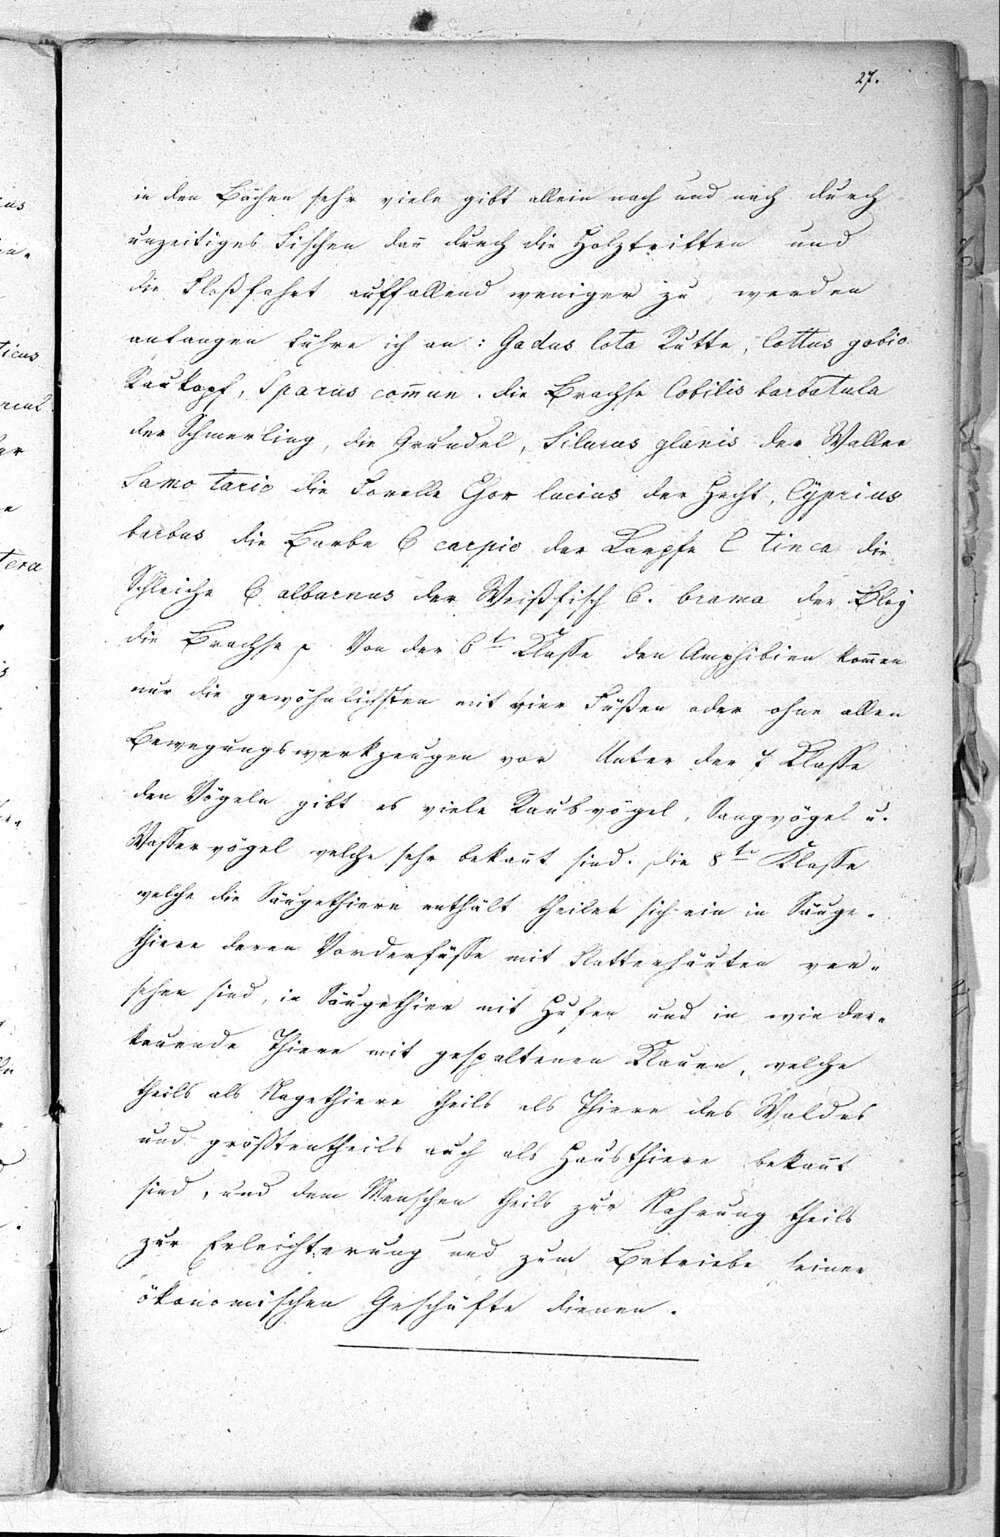 27.
in den Bächen sehr viele gibt allein nach und nach durch
unzeitiges Fischen dañ durch die Holztriften und
die Floßfahrt auffallend weniger zu werden
anfangen führe ich an: Gadus lota Rutte, Cottus gobio
Raukopf, Sparus com̃un. die Brachse Cobilis barbatula
der Schmerling, die Grundel, Silurus glanis der Waller
Samo tario die Forelle Esox lucius der Hecht, Cyprius
barbus die Barbe C carpio der Karpfe C tinca die
Schleiche C alburnus der Weißfisch C. brama der Bley
die Brachse Von der 6t Klasse den Amphibien kom̃en
nur die gewöhnlichsten mit vier Füßen oder ohne allen
Bewegungswerkzeugen vor Unter der 7 Klasse
den Vögeln gibt es viele Raubvögel, Sangvögel u.
Wasservögel welche sehr bekañt sind. Die 8te Klasse
welche die Säugethiere enthält theilet sich ein in Säuge-
thiere deren Vorderfüsse mit Flatterhäuten ver-
sehen sind, in Säugethiere mit Hufen und in wieder-
kauende Thiere mit gespaltenen Klauen, welche
theils als Nagethiere theils als Thiere des Waldes
und größtentheils auch als Hausthiere bekañt
sind, und dem Menschen theils zur Nahrung theils
zur Erleichterung und zum Betriebe seiner
ökonomischen Geschäfte dienen.